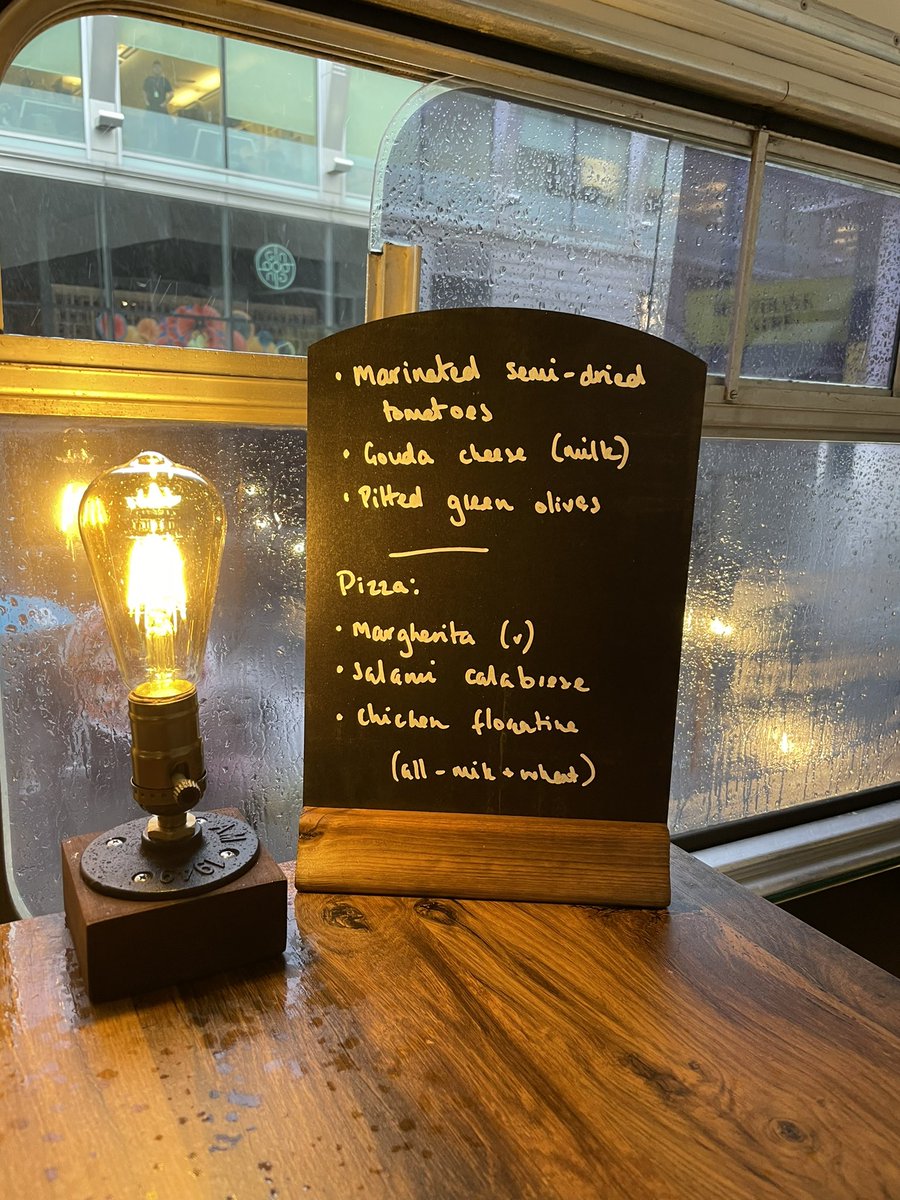 • Marinated semi-dried
tomatoes
• Gouda cheese (milk)
• Pitted green olives
Pizza:
• Margherita (v)
• Salami calabrese
• Chicken florentine
(all - milk + wheat)